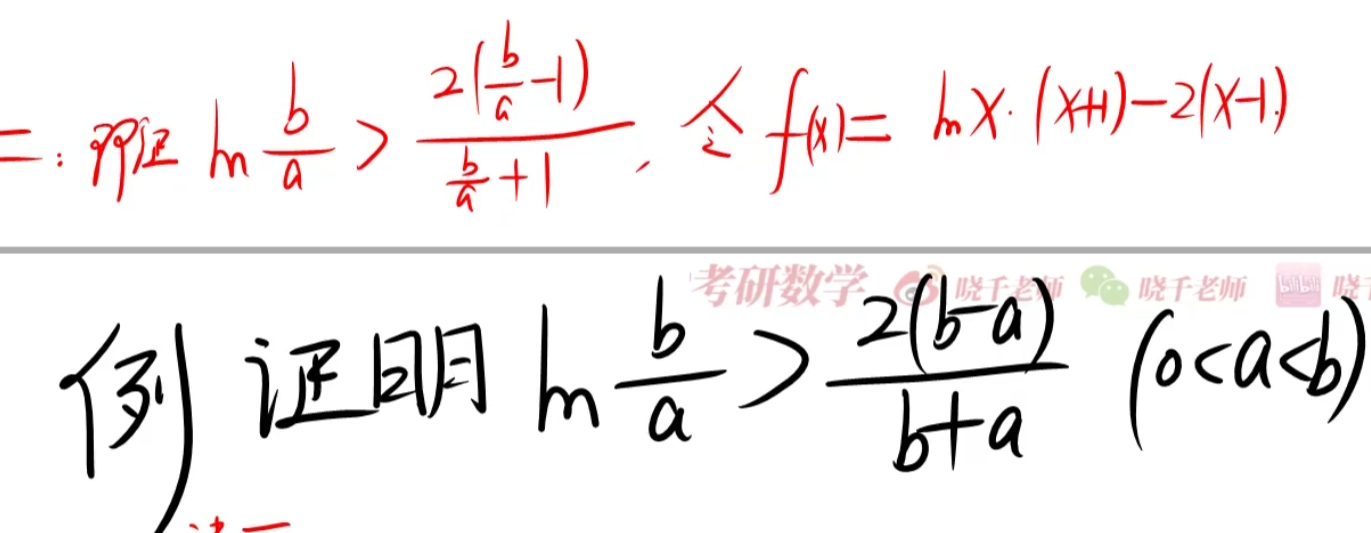 二:即证 ln b/a > 2(b/a-1)/(b/a+1), 令 f(x)= lnx·(x+1)-2(x-1)
考研数学 晓千老师 晓千老师 bilibili 晓
例 证明 ln b/a > 2(b-a)/(b+a) (0<a<b)